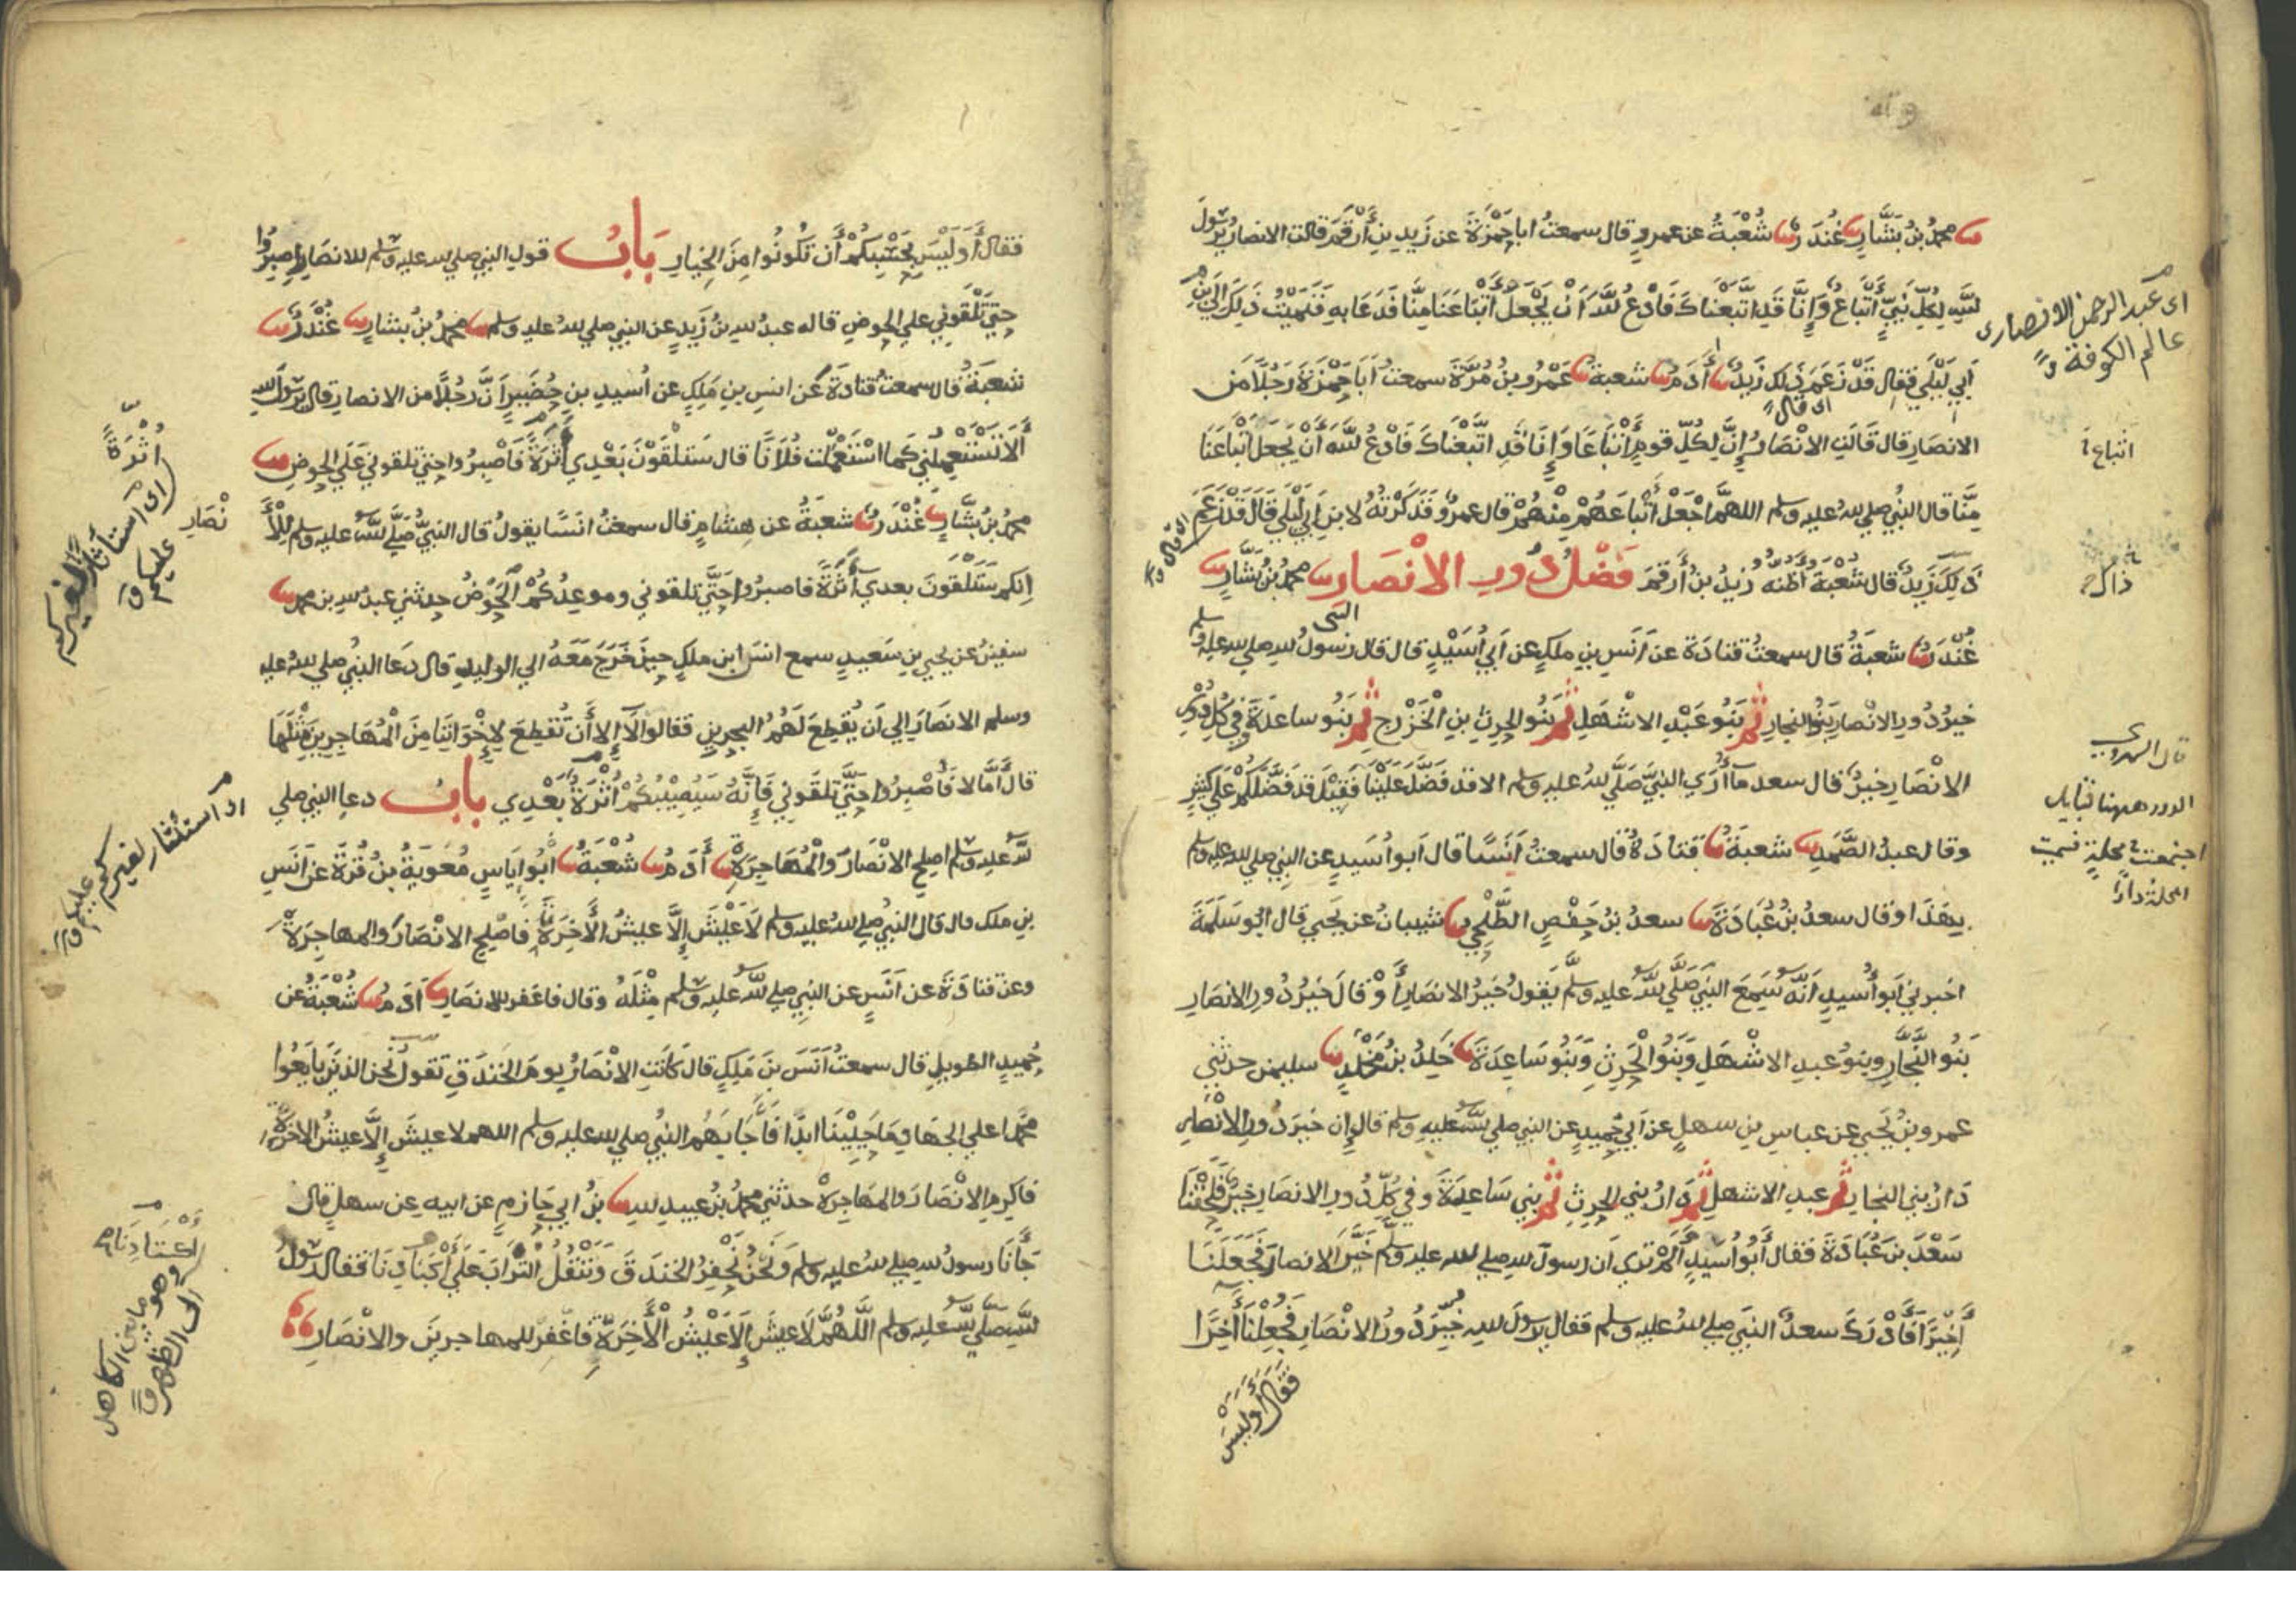 نا محمد بن بشار نا غندر نا شعبة عن عمرو قال سمعت ابا حمزة عن زيد بن أرقم قالت الانصار يرسول
الله لكل نبي أتباع وإنا قد اتبعناك فادع الله أن يجعل أتباعنا منا فدعا به فنميت ذلك الى ابن
أبي ليلي فقال قد زعم ذلك زيد نا أدم نا شعبة نا عمرو بن مرة سمعت أبا حمزة رجلا من
الانصار قال قالت الانصار إن لكل قوم أتباعا وإنا قد اتبعناك فادع الله أن يجعل أتباعنا
منا قال النبي صلي الله عليه وسلم اللهم اجعل أتباعهم منهم قال عمرو فذكرته لابن أبي ليلي قال قد زعم
ذلك زيد قال شعبة أظنه زيد بن أرقم فضل دور الانصار نا محمد بن بشار نا
غندر نا شعبة قال سمعت قتادة عن أنس بن ملك عن أبي أسيد قال قال رسول الله صلي الله عليه وسلم
خير دور الانصار بنو النجار ثم بنو عبد الاشهل ثم بنو الحرث بن الخزرج ثم بنو ساعدة وفي كل دور
الانصار خير قال سعد ما أري النبي صلي الله عليه وسلم الا قد فضل علينا فقيل قد فضلكم علي كثير
وقال عبد الصمد نا شعبة نا قتادة قال سمعت أنسا قال ابو أسيد عن النبي صلي الله عليه وسلم
بهذا وقال سعد بن عبادة نا سعد بن حفص الطلحي نا شيبان عن يحيي قال ابو سلمة
اخبرني أبو أسيد أنه سمع النبي صلي الله عليه وسلم يقول خير الانصار أو قال خير دور الانصار
بنو النجار وبنو عبد الاشهل وبنو الحرث وبنو ساعدة نا خلد بن مخلد نا سليمن حدثني
عمرو بن يحيي عن عباس بن سهل عن أبي حميد عن النبي صلي الله عليه وسلم قال إن خير دور الانصار
دار بني النجار ثم عبد الاشهل ثم دار بني الحرث ثم بني ساعدة وفي كل دور الانصار خير فلحقنا
سعد بن عبادة فقال أبو أسيد ألم تري ان رسول الله صلي الله عليه وسلم خير الانصار فجعلنا
أخيرا فأدرك سعد النبي صلي الله عليه وسلم فقال يرسول الله خير دور الانصار فجعلنا أخرا
فقال أوليس
اى عبد الرحمن الانصارى
عالم الكوفة
اى قال
اتباعا
ذاك
النبى
قال الهروي
الدور ههنا قبايل
اجتمعت في محلة فسميت
المحلة دارا
فقال أوليس بحسبكم أن تكونوا من الخيار باب قول النبي صلي الله عليه وسلم للانصار إصبروا
حتي تلقوني علي الحوض قاله عبد الله بن زيد عن النبي صلي الله عليه وسلم نا محمد بن بشار نا غندر نا
شعبة قال سمعت قتادة عن انس بن ملك عن أسيد بن حضير أن رجلا من الانصار قال يرسول الله
ألا تستعملني كما استعملت فلانا قال ستلقون بعدي أثرة فاصبروا حتي تلقوني علي الحوض نا
محمد بن بشار نا غندر نا شعبة عن هشام قال سمعت انسا يقول قال النبي صلي الله عليه وسلم للأ
نصار
إنكم ستلقون بعدي أثرة فاصبروا حتي تلقوني وموعدكم الحوض حدثني عبد الله بن محمد نا
سفين عن يحيي بن سعيد سمع انس ابن ملك حين خرج معه الي الوليد قال دعا النبي صلي الله عليه
وسلم الانصار الي أن يقطع لهم البحرين فقالوا لا إلا أن تقطع لإخواننا من المهاجرين مثلها
قال أما لا فاصبروا حتي تلقوني فإنه سيصيبكم أثرة بعدي باب دعا النبي صلي
الله عليه وسلم اصلح الانصار والمهاجرة نا أدم نا شعبة نا أبو إياس معوية بن قرة عن أنس
بن ملك قال قال النبي صلي الله عليه وسلم لا عيش إلا عيش الأخرة فاصلح الانصار والمهاجرة
وعن قتادة عن أنس عن النبي صلي الله عليه وسلم مثله وقال فاغفر للانصار نا أدم نا شعبة عن
حميد الطويل قال سمعت أنس بن ملك قال كانت الانصار يوم الخندق تقول نحن الذين بايعوا
محمدا علي الجهاد ما حيينا ابدا فأجابهم النبي صلي الله عليه وسلم اللهم لا عيش إلا عيش الاخرة
فاكرم الانصار والمهاجرة حدثني محمد بن عبيد الله نا بن ابي حازم عن ابيه عن سهل قال
جأنا رسول الله صلي الله عليه وسلم ونحن نحفر الخندق وننقل التراب علي أكبادنا فقال رسول
الله صلي الله عليه وسلم اللهم لا عيش إلا عيش الأخرة فاغفر للمهاجرين والانصار
أثرة
اى استأثار لغيركم
عليكم
اى استئثار لغيركم
عليكم
أكتادنا
وهو ما بين الكاهل
الى الظهر